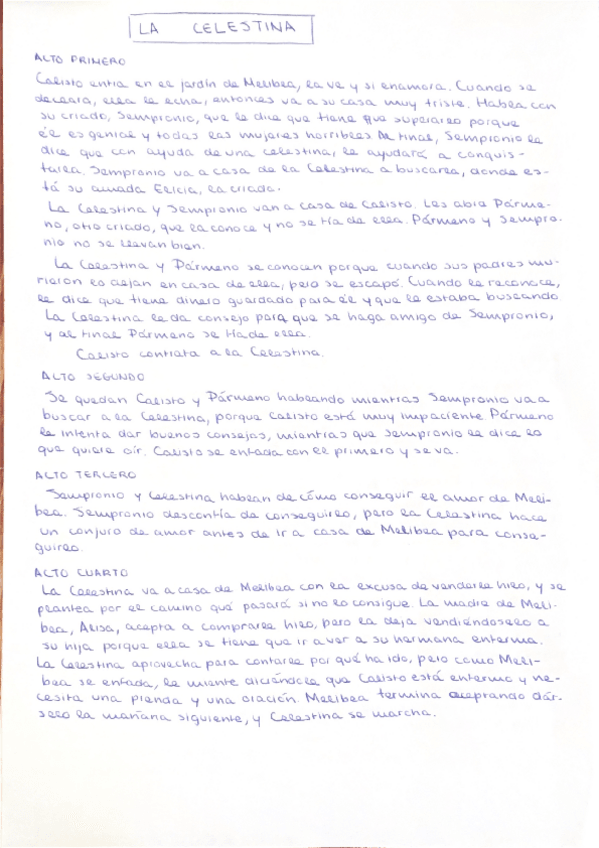 LA CELESTINA
ALTO PRIMERO
Calisto entra en el jardín de Melibea, la ve y si enamora. Cuando se
declara, ella le echa, entonces va a su casa muy triste. Habla con
su criado, Sempronio, que le dice que tiene que superarlo porque
él es genial y todas las mujeres horribles. Al final, Sempronio le
dice que con ayuda de una celestina, le ayudará a conquis-
tarla. Sempronio va a casa de la Celestina a buscarla, donde es-
tá su amada Elicia, la criada.
La Celestina y Sempronio van a casa de Calisto. Les abre Párme-
no, otro criado, que la conoce y no se fía de ella. Pármeno y Sempro-
nio no se llevan bien.
La Celestina y Pármeno se conocen porque cuando sus padres mu-
rieron lo dejan en casa de ella, pero se escapó. Cuando le reconoce,
le dice que tiene dinero guardado para él y que le estaba buscando.
La Celestina le da consejo para que se haga amigo de Sempronio,
y al final Pármeno se fía de ella.
Calisto contrata a la Celestina.
ALTO SEGUNDO
Se quedan Calisto y Pármeno hablando mientras Sempronio va a
buscar a la Celestina, porque Calisto está muy impaciente. Pármeno
le intenta dar buenos consejos, mientras que Sempronio le dice lo
que quiere oír. Calisto se enfada con el primero y se va.
ALTO TERCERO
Sempronio y Celestina hablan de cómo conseguir el amor de Meli-
bea. Sempronio desconfía de conseguirlo, pero la Celestina hace
un conjuro de amor antes de ir a casa de Melibea para conse-
guirlo.
ALTO CUARTO
La Celestina va a casa de Melibea con la excusa de venderle hilo, y se
plantea por el camino qué pasará si no lo consigue. La madre de Meli-
bea, Alisa, acepta a comprarle hilo, pero la deja vendiéndoselo a
su hija porque ella se tiene que ir a ver a su hermana enferma.
La Celestina aprovecha para contarle por qué ha ido, pero como Meli-
bea se enfada, le miente diciéndole que Calisto está enfermo y ne-
cesita una prenda y una oración. Melibea termina aceptando dár-
selo la mañana siguiente, y Celestina se marcha.